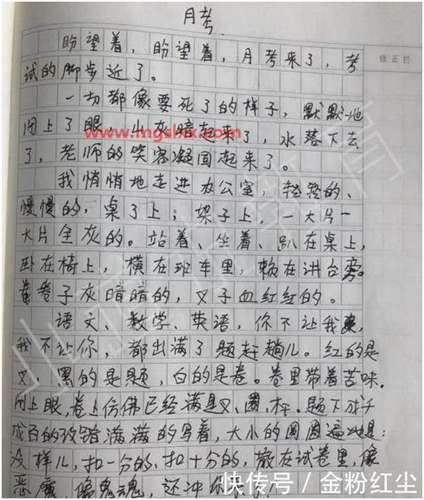 月考
盼望着，盼望着，月考来了，考
试的脚步近了。
一切都像要死了的样子，默默地
闭上了眼。山灰暗起来了，水落下去
了，老师的笑容凝固起来了。
我悄悄地走进办公室，轻轻的、
慢慢的，桌了上；架子上，一大片一
大片全灰的。站着、坐着、趴在桌上，
卧在椅上，横在班车里，赖在讲台旁。
卷子灰暗暗的，叉子血红红的。
语文、数学、英语，你不让我，
我不让你，都出满了题赶趟儿。红的是
叉，黑的是题，白的是卷。卷里带着苦味，
闭上眼，卷上仿佛已经满是叉、圈、杠。题下成千
成百的改错满满的写着，大小的圆圈遍地是：
没样儿，扣一分的，扣十分的，散在试卷里，像
恶魔，像鬼魂，还冲你
www.mgshix.com
修正栏
快传号 / 金粉红尘